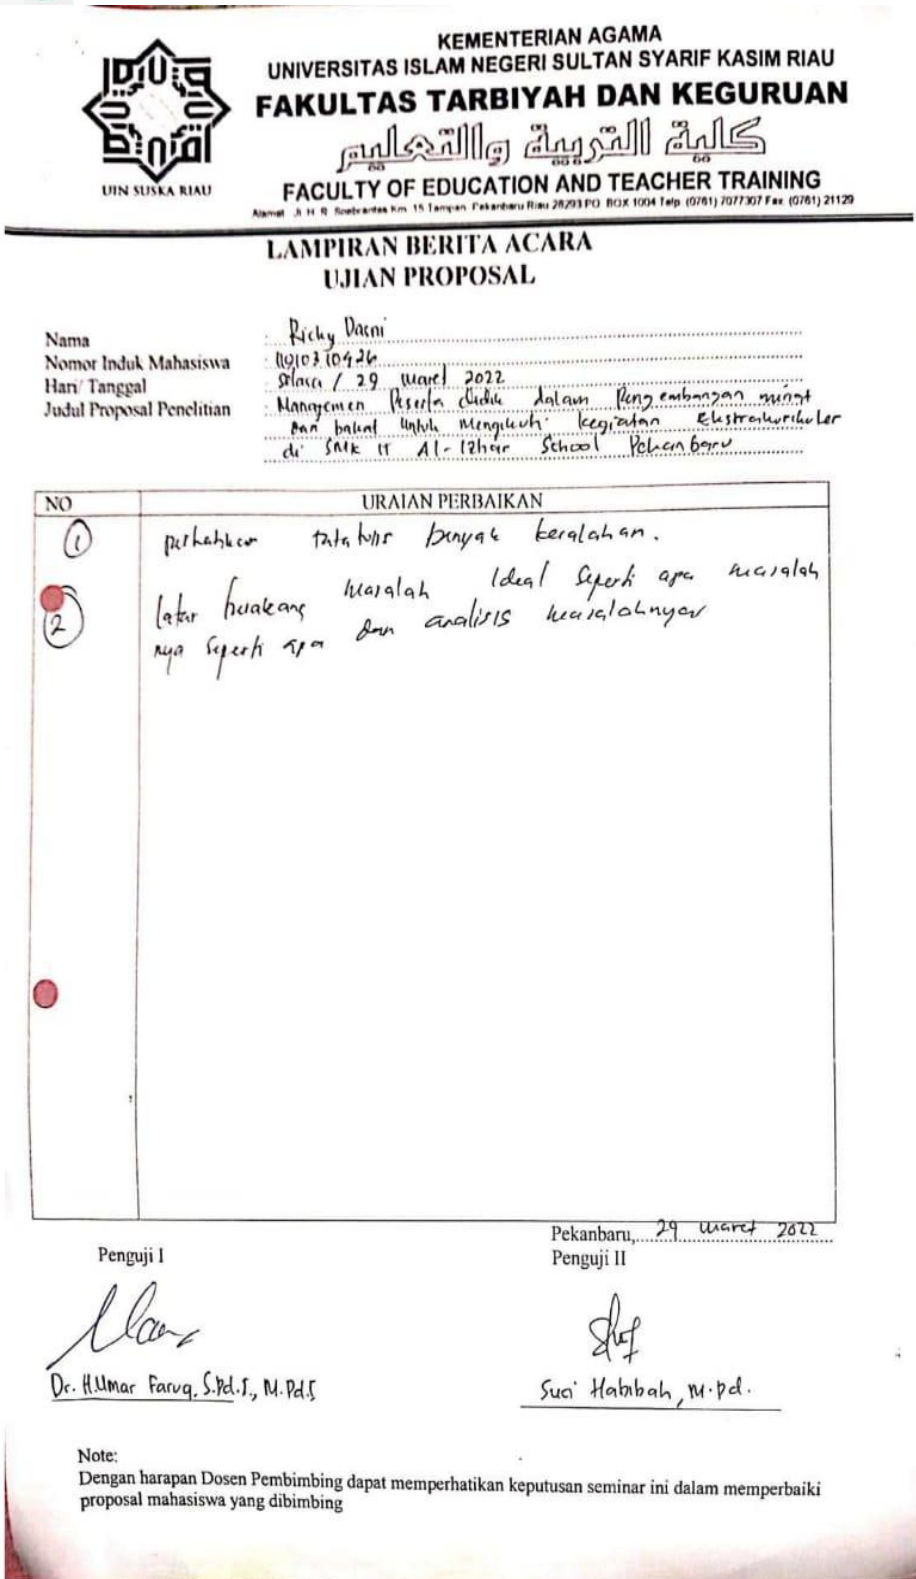 KEMENTERIAN AGAMA
UNIVERSITAS ISLAM NEGERI SULTAN SYARIF KASIM RIAU
FAKULTAS TARBIYAH DAN KEGURUAN
كلية التربية والتعليم
FACULTY OF EDUCATION AND TEACHER TRAINING
Alamat Jl H R Soebrantas Km 15 Tampan Pekanbaru Riau 28293 PO BOX 1004 Telp (0761) 7077307 Fax (0761) 21129
UIN SUSKA RIAU
LAMPIRAN BERITA ACARA
UJIAN PROPOSAL
Nama : Ricky Dasni
Nomor Induk Mahasiswa : 11910310426
Hari/ Tanggal : Selasa / 29 Maret 2022
Judul Proposal Penelitian : Manajemen Peserta Didik dalam Pengembangan minat
dan bakat untuk Mengikuti kegiatan Ekstrakurikuler
di SMK IT Al-Izhar School Pekanbaru
NO URAIAN PERBAIKAN
1 perhatikan tata tulis banyak kesalahan.
2 latar masalah Ideal seperti apa masalah
nya seperti apa dan analisis masalahnya
Pekanbaru, 29 Maret 2022
Penguji I Penguji II
Dr. H.Umar Faruq, S.Pd.I., M.Pd.I Suci Habibah, M.Pd.
Note:
Dengan harapan Dosen Pembimbing dapat memperhatikan keputusan seminar ini dalam memperbaiki
proposal mahasiswa yang dibimbing